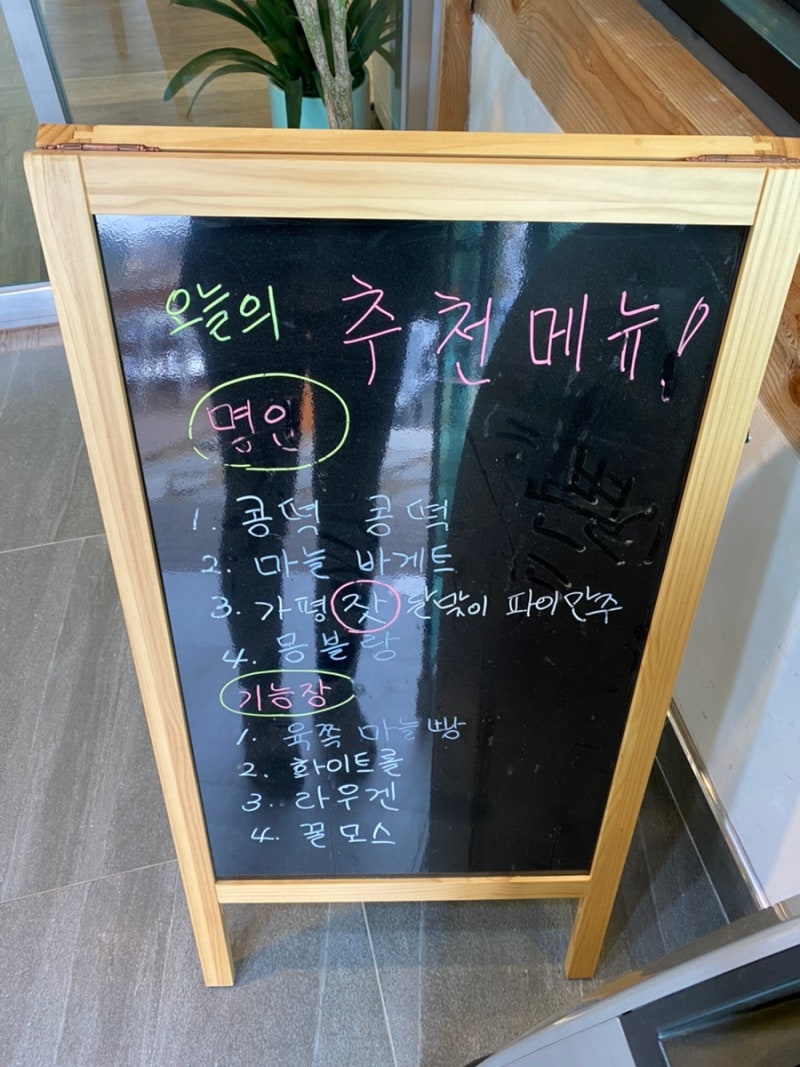 오늘의 추천메뉴!
명인
1. 콩떡 콩떡
2. 마늘 바게트
3. 가평 잣 날맞이 파이만주
4. 몽블랑
기능장
1. 육쪽마늘빵
2. 화이트롤
3. 라우겐
4. 꿀모스